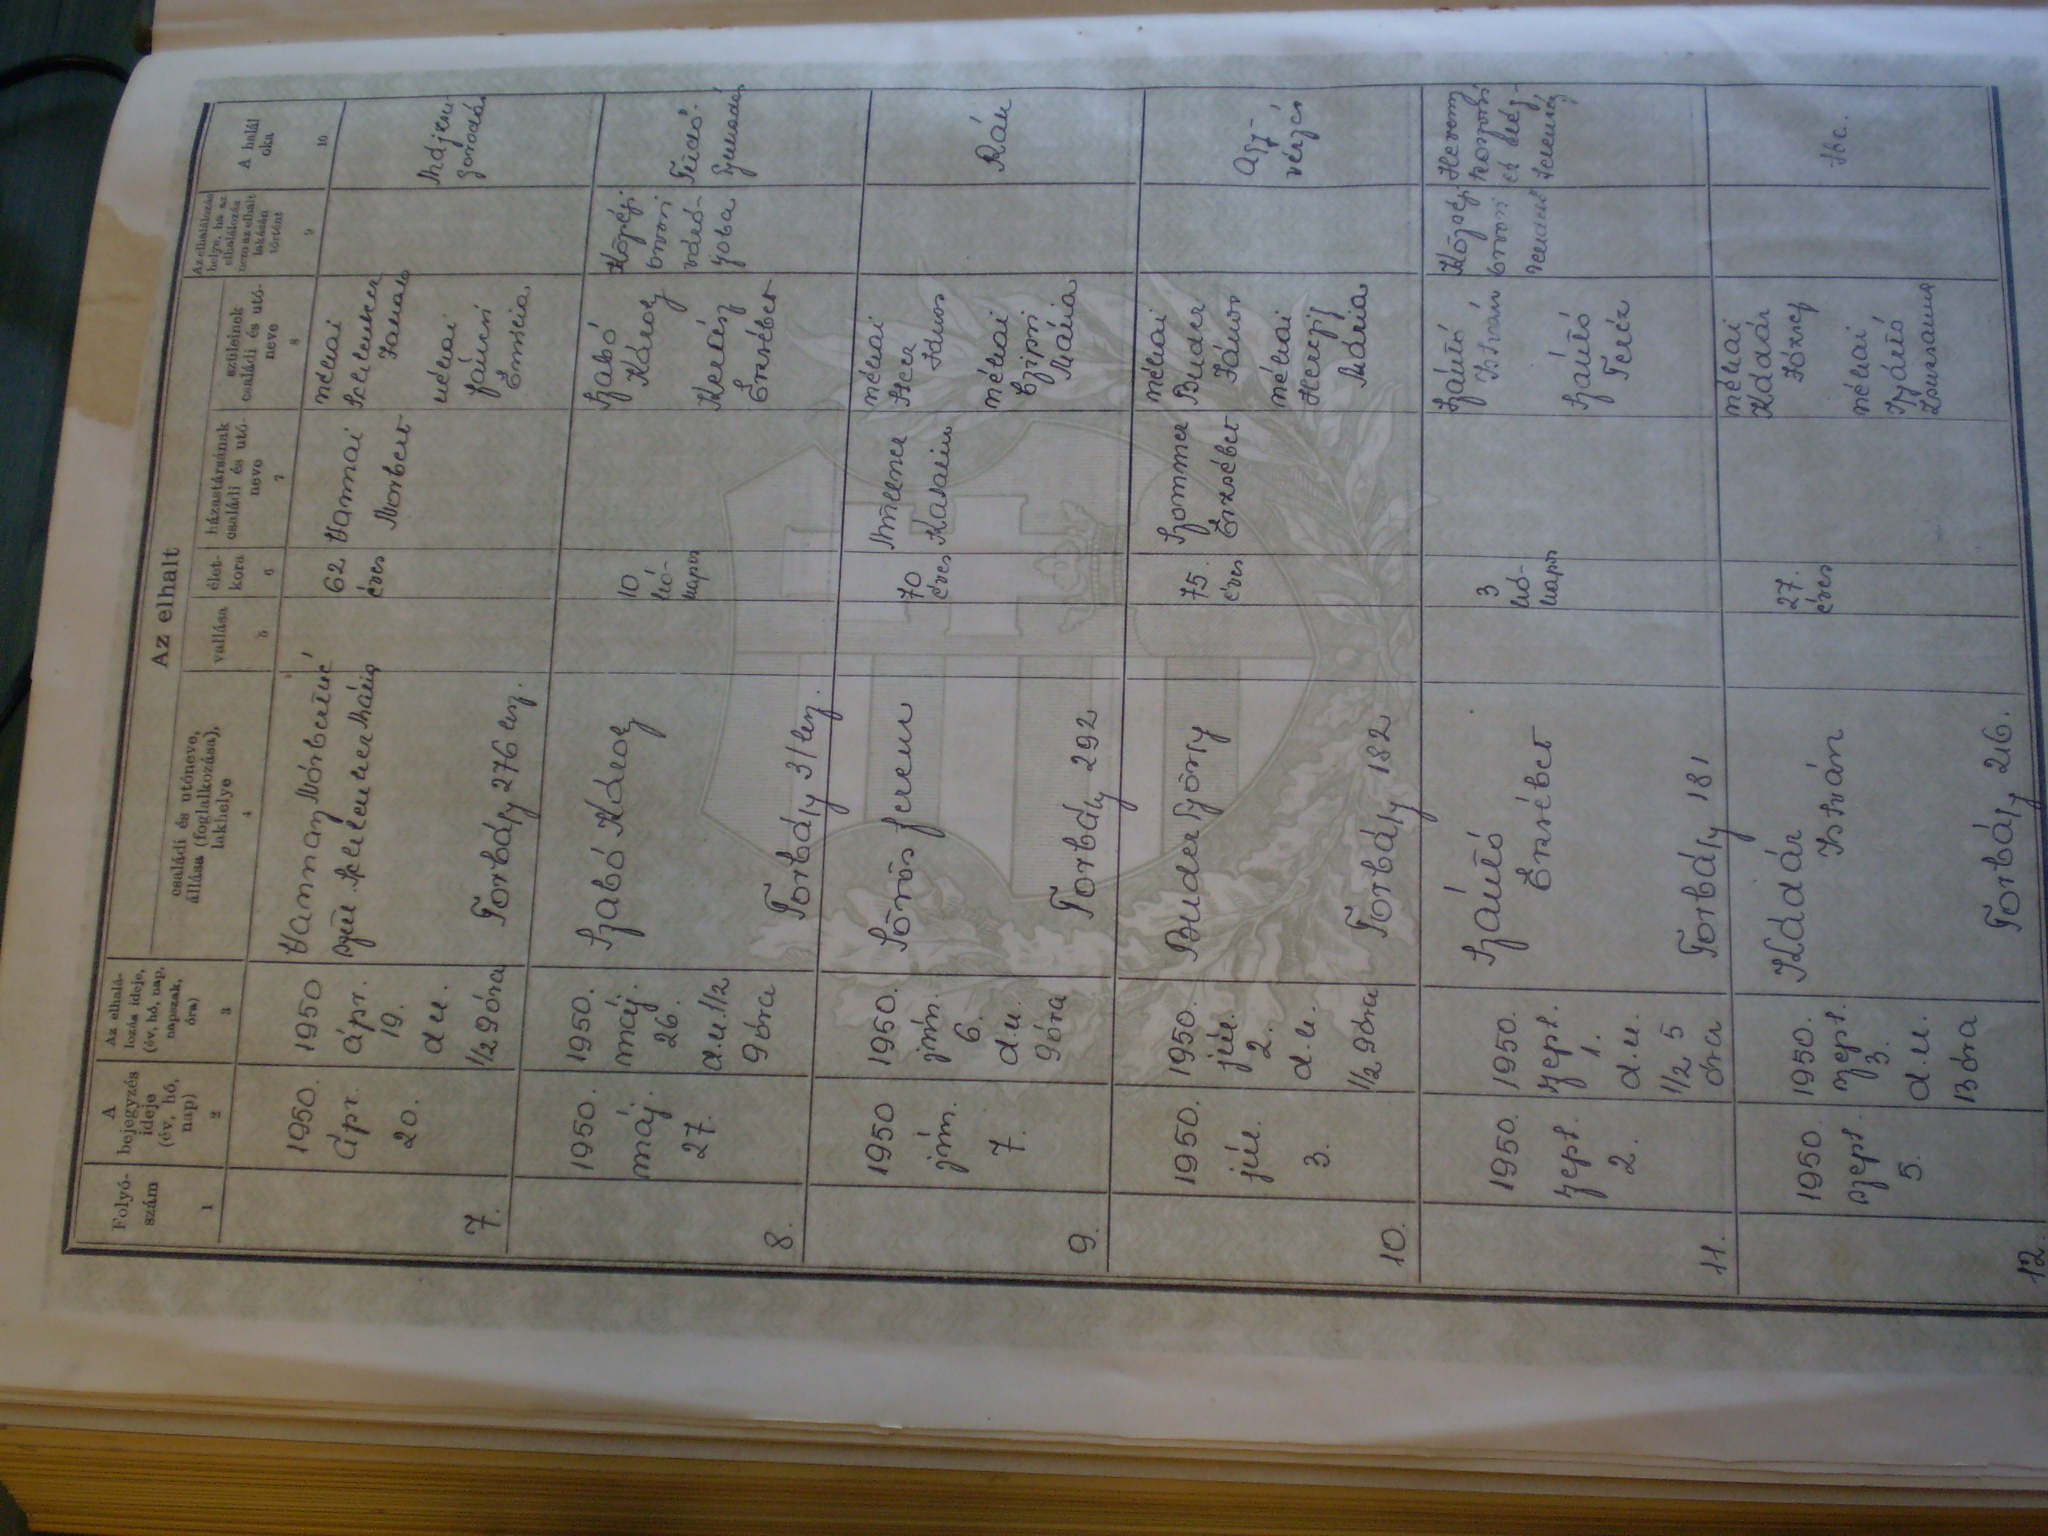 Az elhalt
Folyó-
szám
A
bejegyzés
ideje
(év, hó,
nap)
Az elhalá-
lozás ideje,
(év, hó, nap,
napszak,
óra)
családi és utóneve,
állása (foglalkozása),
lakhelye
vallása
élet-
kora
házastársának
családi és utó-
neve
szüleinek
családi és utó-
neve
Az elhalálozás
helye, ha az
elhalálozás
nem az elhalt
lakásán
történt
A halál
oka
1
2
3
4
5
6
7
8
9
10
7.
1950.
ápr.
20.
1950
ápr.
19.
du.
1/2 9 óra
Torbágy 276 hsz.
62
éves
Vannai
Norbert
néhai
néhai
8.
1950.
máj.
27.
1950.
máj.
26.
d.u. 1/2
9 óra
Szabó Károly
Torbágy 31 hsz.
10
hó-
napos
Szabó
Károly
Erzsébet
Tüdő-
9.
1950
jún.
7.
1950.
jún.
6.
d.u.
9 óra
Sörös Ferenc
Torbágy 292
70
éves
Katalin
néhai
János
néhai
Mária
Rák
10.
1950.
júl.
3.
1950.
júl.
2.
d.u.
1/2 9 óra
Buder György
Torbágy 182
75.
éves
Sommer
Erzsébet
néhai
Buder
János
néhai
Herczig
Mária
Agy-
vérzés
11.
1950.
szept.
2.
1950.
szept.
1.
d.u.
1/2 5
óra
Szántó
Erzsébet
Torbágy 181
3
hó-
napos
Szántó
István
Szántó
Teréz
12.
1950.
szept
5.
1950.
szept.
3.
d.u.
13 óra
Kádár
István
Torbágy 216.
27.
éves
néhai
Kádár
József
néhai
Zsuzsanna
Tbc.